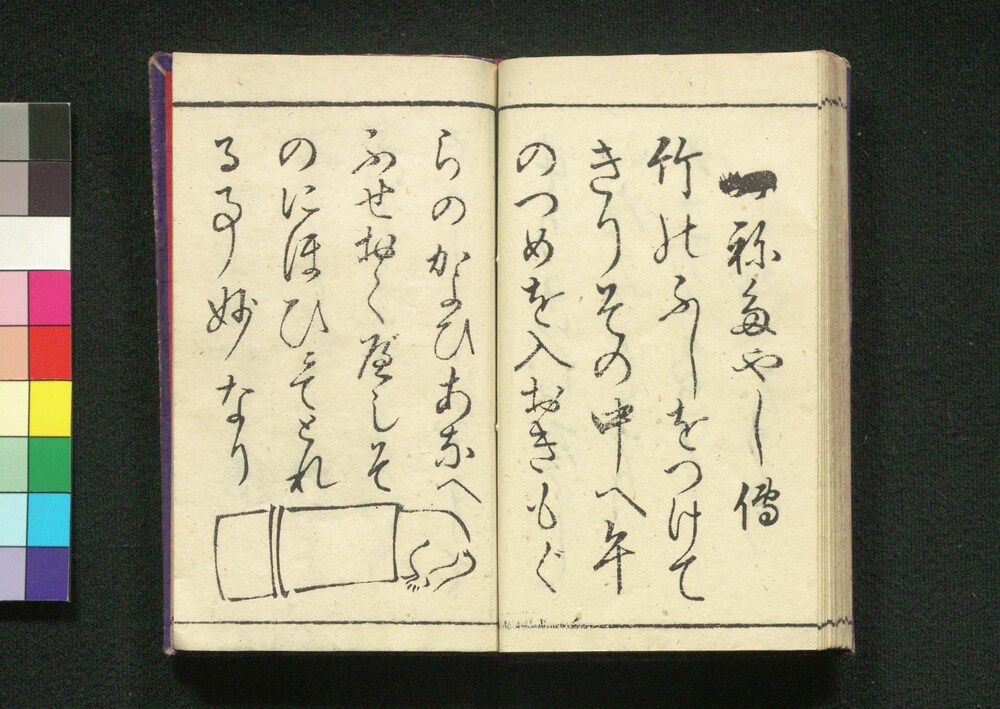 一 祢多やし傳
竹のふしをつけて
きりその中へ午
のつめを入おきもぐ
らのかよひあなへ
ふせおくべしそ
のにほひにてとれ
る事妙なり